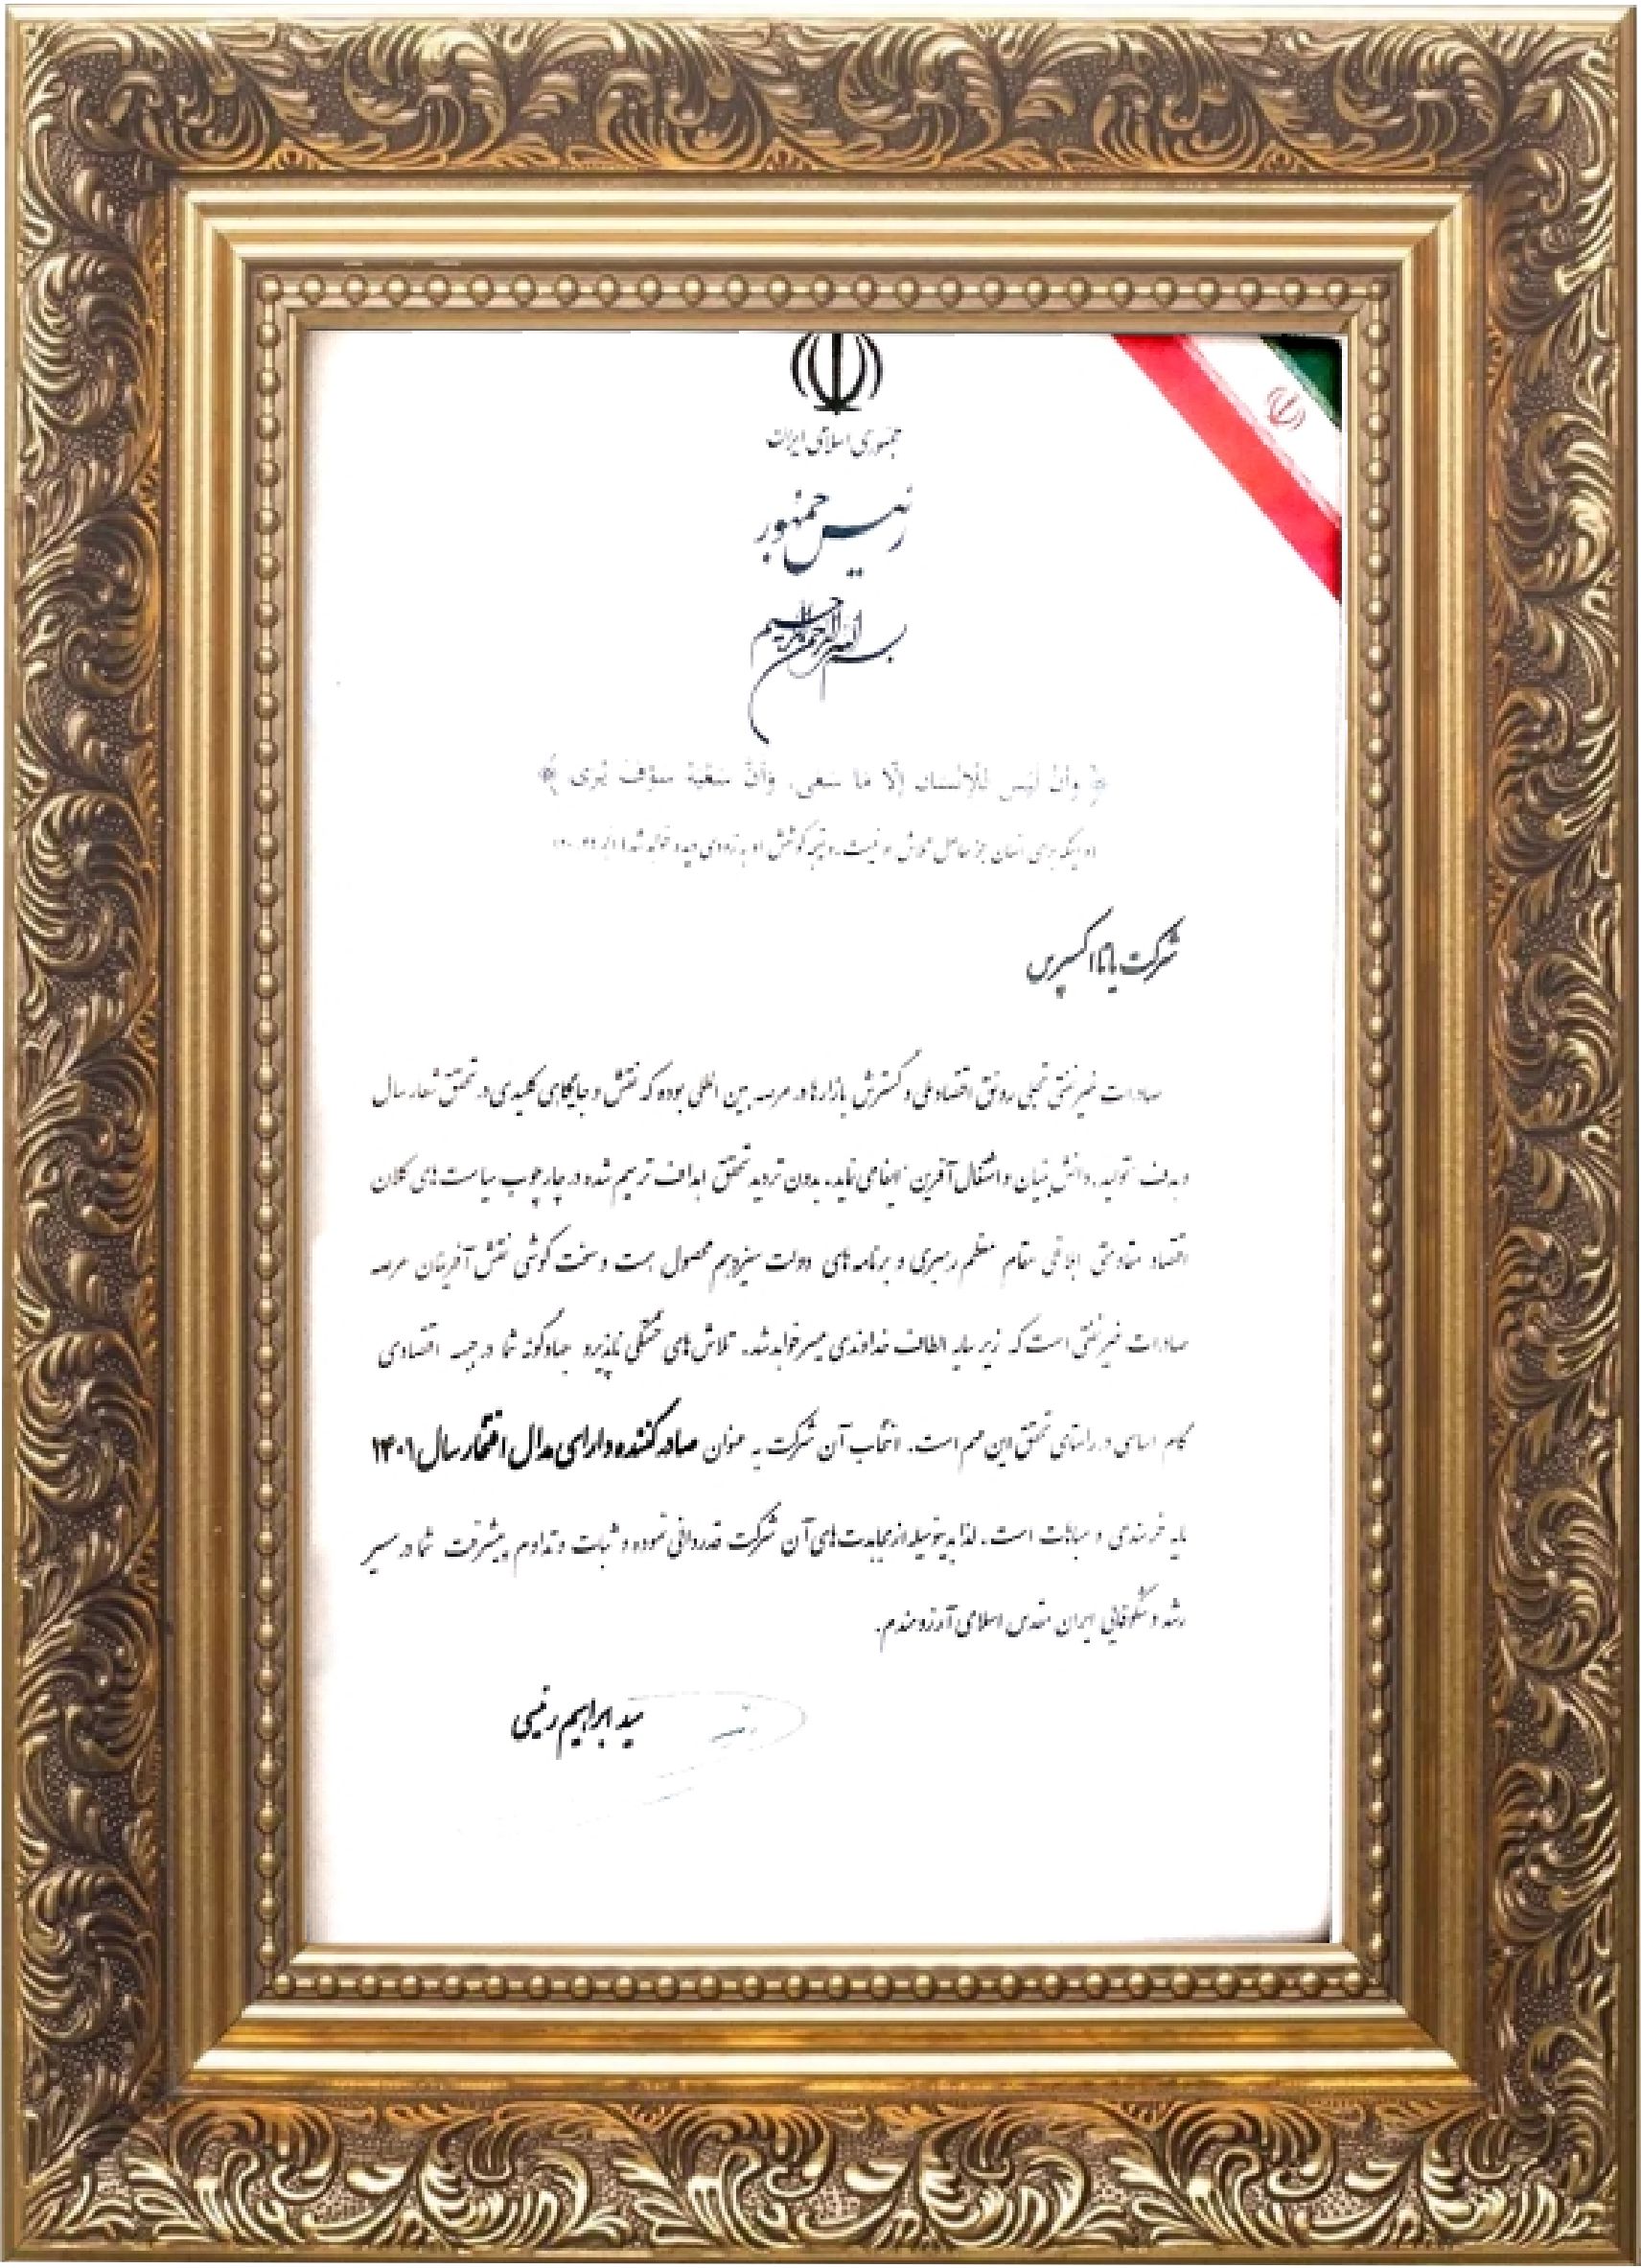 جمهوری اسلامی ایران
رئیس جمهور
بسم الله الرحمن الرحیم
﴿ وَأَن لَّيْسَ لِلْإِنسَانِ إِلَّا مَا سَعَى، وَأَنَّ سَعْيَهُ سَوْفَ يُرَى ﴾
اینکه برای انسان جز حاصل تلاش او نیست، و نتیجه کوشش او به زودی دیده خواهد شد
شرکت یاتا اکسپرس
صادرات غیرنفتی تجلی رونق اقتصاد ملی و گسترش بازارها در عرصه بین المللی بوده که نقش و جایگاهی کلیدی در تحقق شعار سال
و هدف تولید، دانش بنیان و اشتغال آفرین ایفا می نماید. بدون تردید تحقق اهداف ترسیم شده در چارچوب سیاست های کلان
اقتصاد مقاومتی ابلاغی مقام معظم رهبری و برنامه های دولت سیزدهم محصول همت و سخت کوشی نقش آفرینان عرصه
صادرات غیرنفتی است که زیر سایه الطاف خداوندی میسر خواهد شد. تلاش های خستگی ناپذیر و جهادگونه شما در جبهه اقتصادی
گام اساسی در راستای تحقق این مهم است. انتخاب آن شرکت به عنوان صادرکننده دارای مدال افتخار سال ۱۴۰۱
مایه خرسندی و مباهات است. لذا بدینوسیله از مجاهدت های آن شرکت قدردانی نموده و ثبات و تداوم پیشرفت شما در مسیر
رشد و شکوفایی ایران مقدس اسلامی آرزومندم.
سید ابراهیم رئیسی